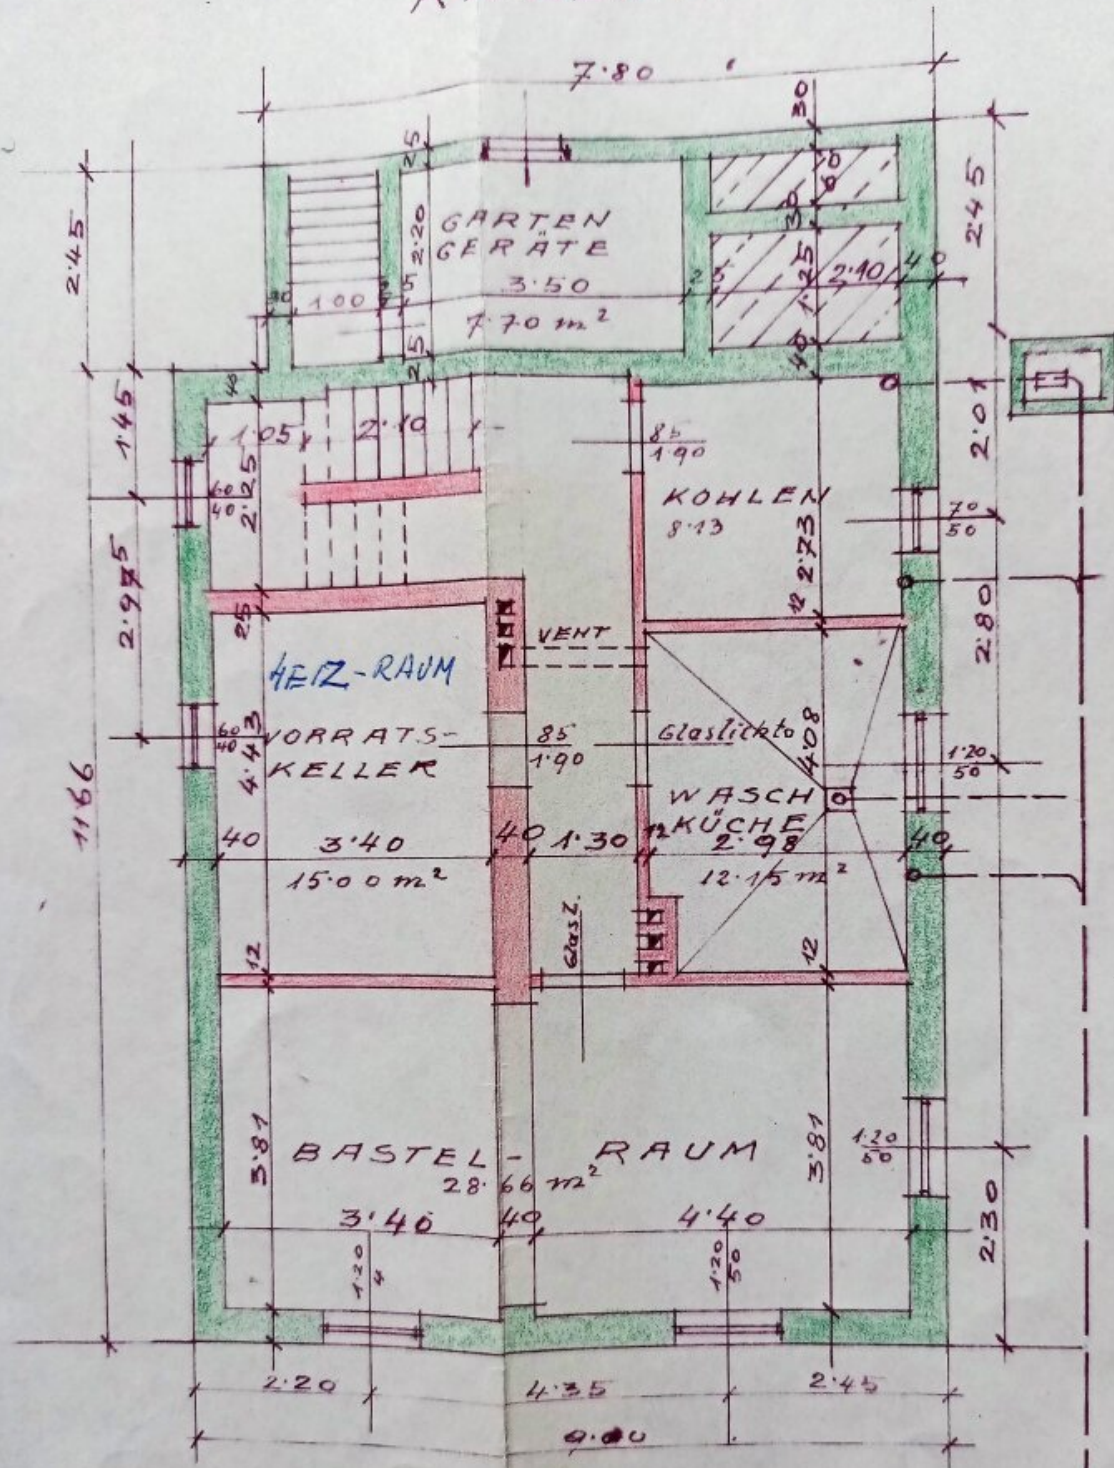 7.80
30
25
2.45
GARTEN
GERÄTE
2.20
60
30
2.45
3.50
1.25
2.10
40
30
1.00
25
25
7.70 m²
25
40
40
1.45
1.05
2.10
85
1.90
2.01
60
40
2.25
KOHLEN
8.13
2.73
70
50
2.97⁵
25
12
VENT
2.80
HEIZ-RAUM
VORRATS-
KELLER
60
40
4.43
85
1.90
Glaslichte
4.08
1.20
50
WASCH
KÜCHE
11.66
40
3.40
40
1.30
12
2.98
40
15.00 m²
12.15 m²
Glasl.
12
12
3.81
BASTEL-RAUM
28.66 m²
3.81
1.20
50
3.40
40
4.40
2.30
1.20
4
1.20
50
2.20
4.35
2.45